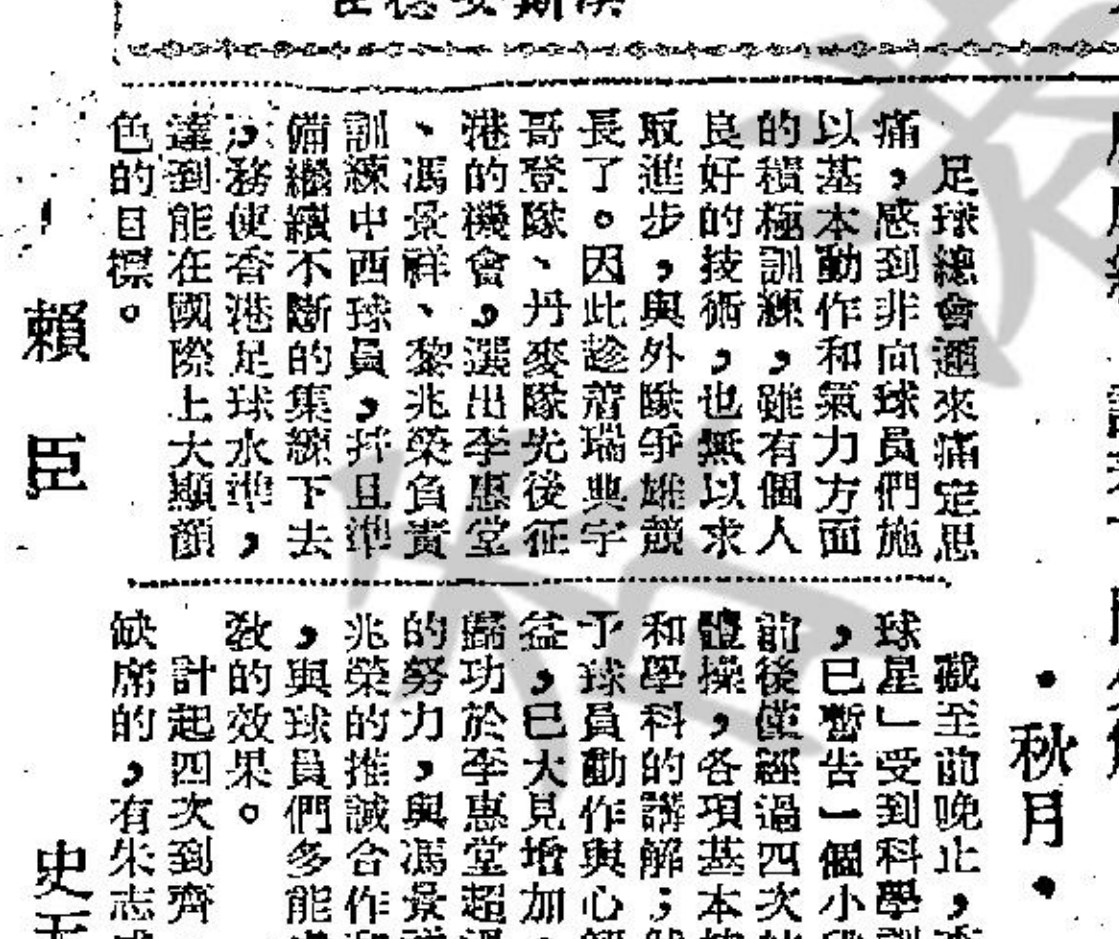 ・秋月・
足球總會邇來痛定思
痛,感到非向球員們施
以基本動作和氣力方面
的積極訓練,雖有個人
良好的技術,也無以求
取進步,與外隊爭雄競
長了。因此趁着瑞典宇
哥登隊、丹麥隊先後征
港的機會,選出李惠堂
、馮景祥、黎兆榮負責
訓練中西球員,并且準
備繼續不斷的集練下去
,務使香港足球水準,
達到能在國際上大顯顏
色的目標。
賴臣
截至前晚止,
球星」受到科學
,已暫告一個小
前後僅經過四次
體操,各項基本
和學科的講解;
予球員動作與心
益,已大見增加
歸功於李惠堂超
的努力,與馮景
兆榮的推誠合作
,與球員們多能
敎的效果。
計起四次到齊
缺席的,有朱志
史